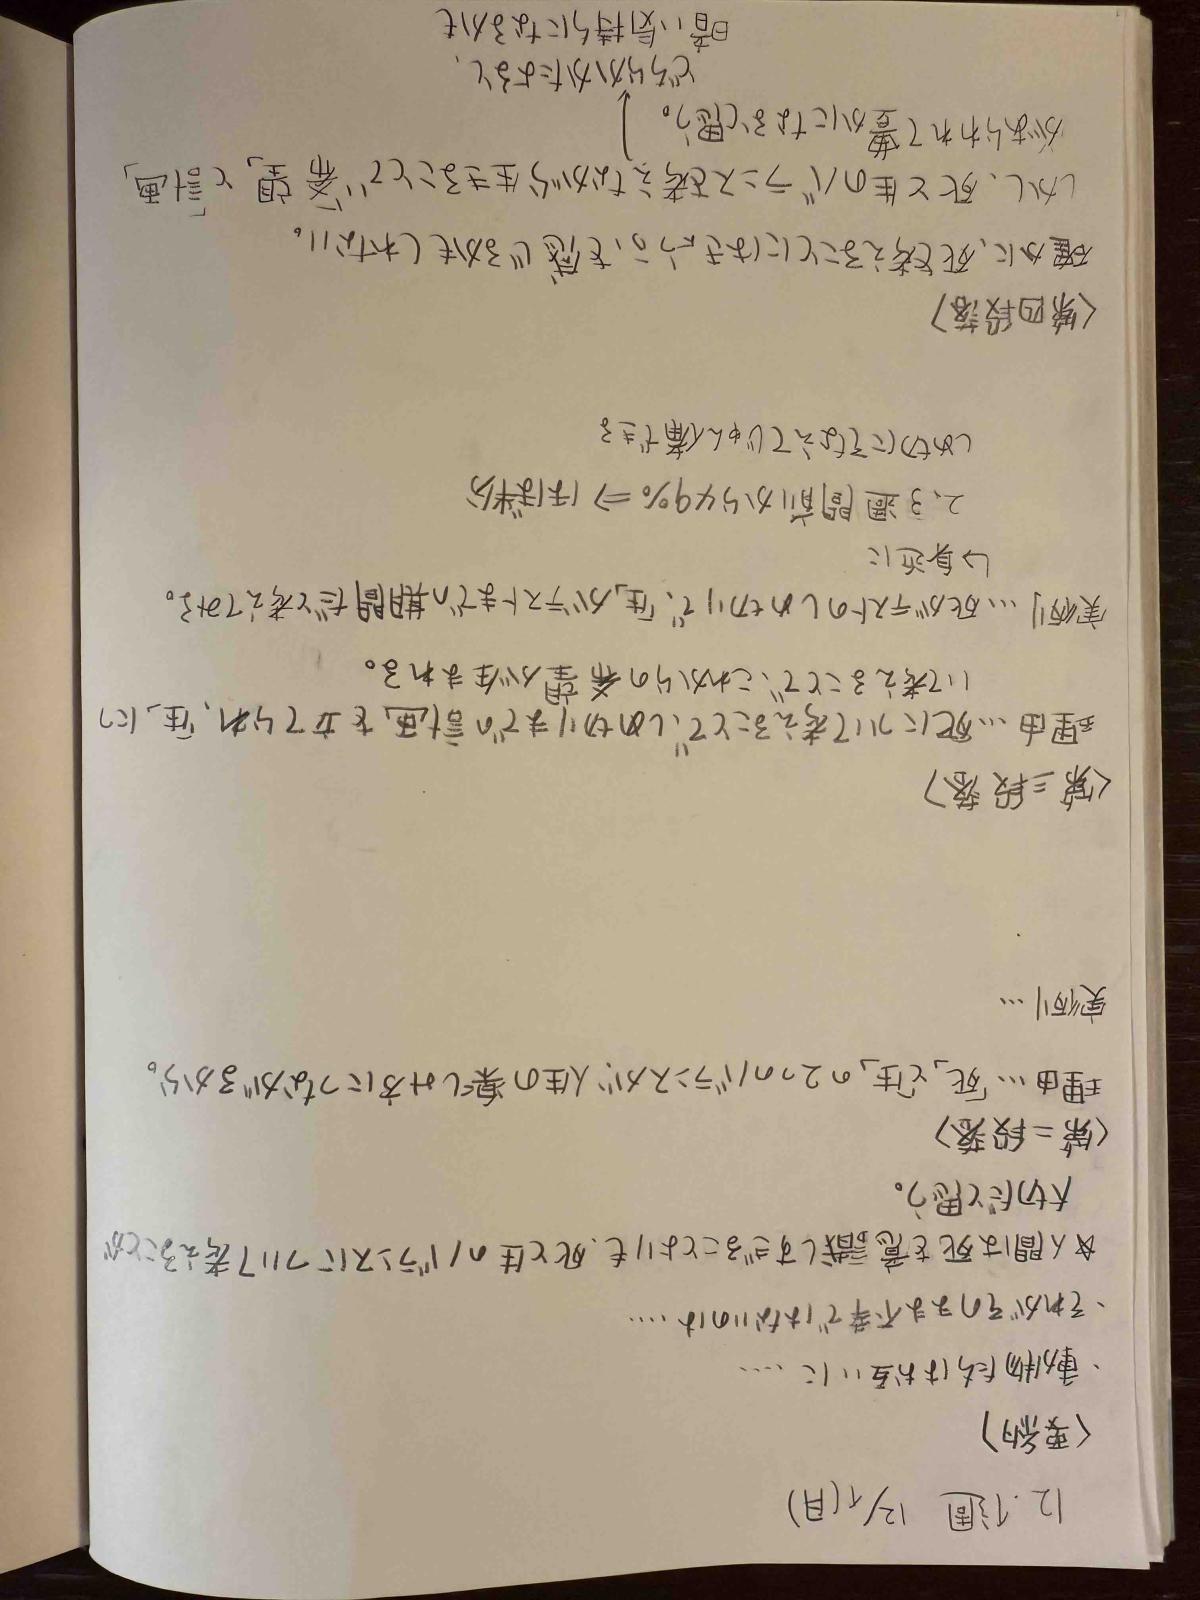 12.1週 12/1(月)
〈要約〉
・動物たちはお互いに……
・それがそのまま不幸ではないのは……
☆人間は死を意識しすぎることよりも、死と生のバランスについて考えることが
大切だと思う。
〈第二段落〉
理由…「死」と「生」の2つのバランスが、人生の楽しみ方につながるから。
実例…
〈第三段落〉
理由…死について考えることで、しめ切りまでの計画を立てられ、「生」につ
いて考えることで、これからの希望が生まれる。
実例…死がテストのしめ切りで、「生」がテストまでの期間だと考えてみる。
↳身近に
2、3週間前から49%⇒ほぼ半分
しめ切にそなえてじゅん備できる
〈第四段落〉
確かに、死を考えることにはきょうふを感じるかもしれない。
しかし、死と生のバランスを考えながら生きることで「希望」と「計画」
があらわれて豊かになると思う。
どちらかかたよると、
暗い気持ちになるかも